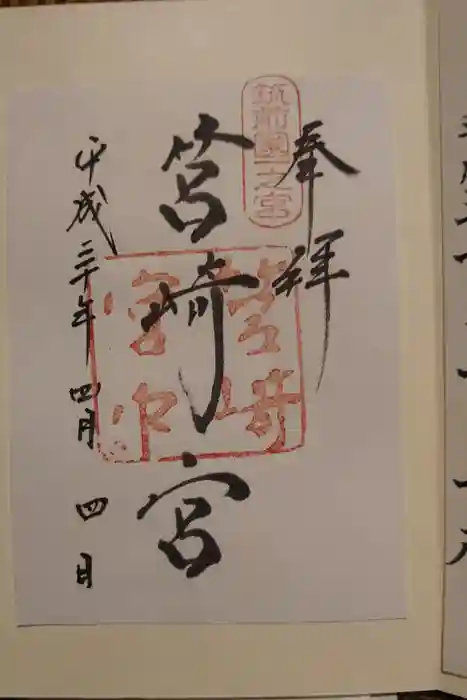 奉拝
筑前國一之宮
筥崎宮
筥崎
宮印
平成三十年四月四日